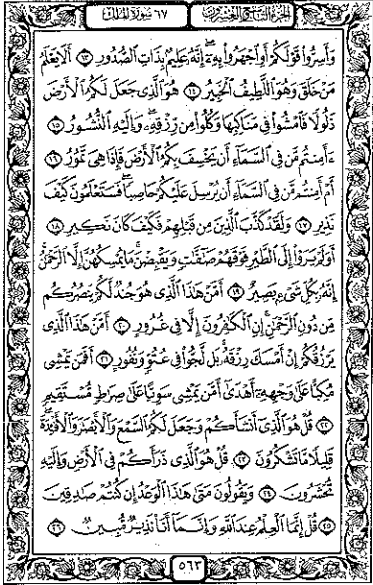 الجزء التاسع والعشرون ٦٧ سورة الملك
وَأَسِرُّوا۟ قَوْلَكُمْ أَوِ ٱجْهَرُوا۟ بِهِۦٓ ۖ إِنَّهُۥ عَلِيمٌۢ بِذَاتِ ٱلصُّدُورِ ١٣ أَلَا يَعْلَمُ
مَنْ خَلَقَ وَهُوَ ٱللَّطِيفُ ٱلْخَبِيرُ ١٤ هُوَ ٱلَّذِى جَعَلَ لَكُمُ ٱلْأَرْضَ
ذَلُولًا فَٱمْشُوا۟ فِى مَنَاكِبِهَا وَكُلُوا۟ مِن رِّزْقِهِۦ ۖ وَإِلَيْهِ ٱلنُّشُورُ ١٥
ءَأَمِنتُم مَّن فِى ٱلسَّمَآءِ أَن يَخْسِفَ بِكُمُ ٱلْأَرْضَ فَإِذَا هِىَ تَمُورُ ١٦
أَمْ أَمِنتُم مَّن فِى ٱلسَّمَآءِ أَن يُرْسِلَ عَلَيْكُمْ حَاصِبًا ۖ فَسَتَعْلَمُونَ كَيْفَ
نَذِيرِ ١٧ وَلَقَدْ كَذَّبَ ٱلَّذِينَ مِن قَبْلِهِمْ فَكَيْفَ كَانَ نَكِيرِ ١٨
أَوَلَمْ يَرَوْا۟ إِلَى ٱلطَّيْرِ فَوْقَهُمْ صَـٰٓفَّـٰتٍ وَيَقْبِضْنَ ۚ مَا يُمْسِكُهُنَّ إِلَّا ٱلرَّحْمَـٰنُ ۚ
إِنَّهُۥ بِكُلِّ شَىْءٍۭ بَصِيرٌ ١٩ أَمَّنْ هَـٰذَا ٱلَّذِى هُوَ جُندٌ لَّكُمْ يَنصُرُكُم
مِّن دُونِ ٱلرَّحْمَـٰنِ ۚ إِنِ ٱلْكَـٰفِرُونَ إِلَّا فِى غُرُورٍ ٢٠ أَمَّنْ هَـٰذَا ٱلَّذِى
يَرْزُقُكُمْ إِنْ أَمْسَكَ رِزْقَهُۥ ۚ بَل لَّجُّوا۟ فِى عُتُوٍّ وَنُفُورٍ ٢١ أَفَمَن يَمْشِى
مُكِبًّا عَلَىٰ وَجْهِهِۦٓ أَهْدَىٰٓ أَمَّن يَمْشِى سَوِيًّا عَلَىٰ صِرَٰطٍ مُّسْتَقِيمٍ
٢٢ قُلْ هُوَ ٱلَّذِىٓ أَنشَأَكُمْ وَجَعَلَ لَكُمُ ٱلسَّمْعَ وَٱلْأَبْصَـٰرَ وَٱلْأَفْـِٔدَةَ ۖ
قَلِيلًا مَّا تَشْكُرُونَ ٢٣ قُلْ هُوَ ٱلَّذِى ذَرَأَكُمْ فِى ٱلْأَرْضِ وَإِلَيْهِ
تُحْشَرُونَ ٢٤ وَيَقُولُونَ مَتَىٰ هَـٰذَا ٱلْوَعْدُ إِن كُنتُمْ صَـٰدِقِينَ
٢٥ قُلْ إِنَّمَا ٱلْعِلْمُ عِندَ ٱللَّهِ وَإِنَّمَآ أَنَا۠ نَذِيرٌ مُّبِينٌ ٢٦
٥٦٣